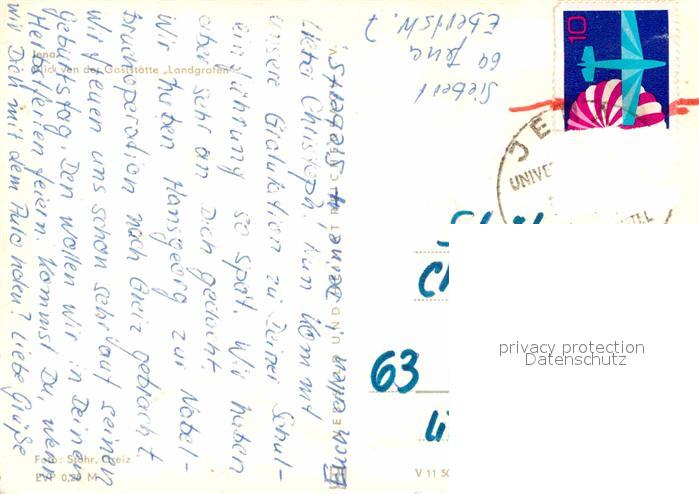 Jena
Blick von der Gaststätte „Landgrafen"
Lieber Christoph! Nun kommt
unsere Gratulation zu Deiner Schul-
einführung so spät. Wir haben
aber sehr an Dich gedacht.
Wir haben Hansgeorg zur Nabel-
bruchoperation nach Greiz gebracht.
Wir freuen uns schon sehr auf seinen
Geburtstag. Den wollen wir in Deinen
Herbstferien feiern. Kommst Du, wenn
wir Dich mit dem Auto holen? Liebe Grüße
Foto: Stöhr, Greiz
EVP 0,20 M
V 11 50
Siebert
69 Jena
Ebertstr. 7
10
JE
UNIVE
63
privacy protection
Datenschutz